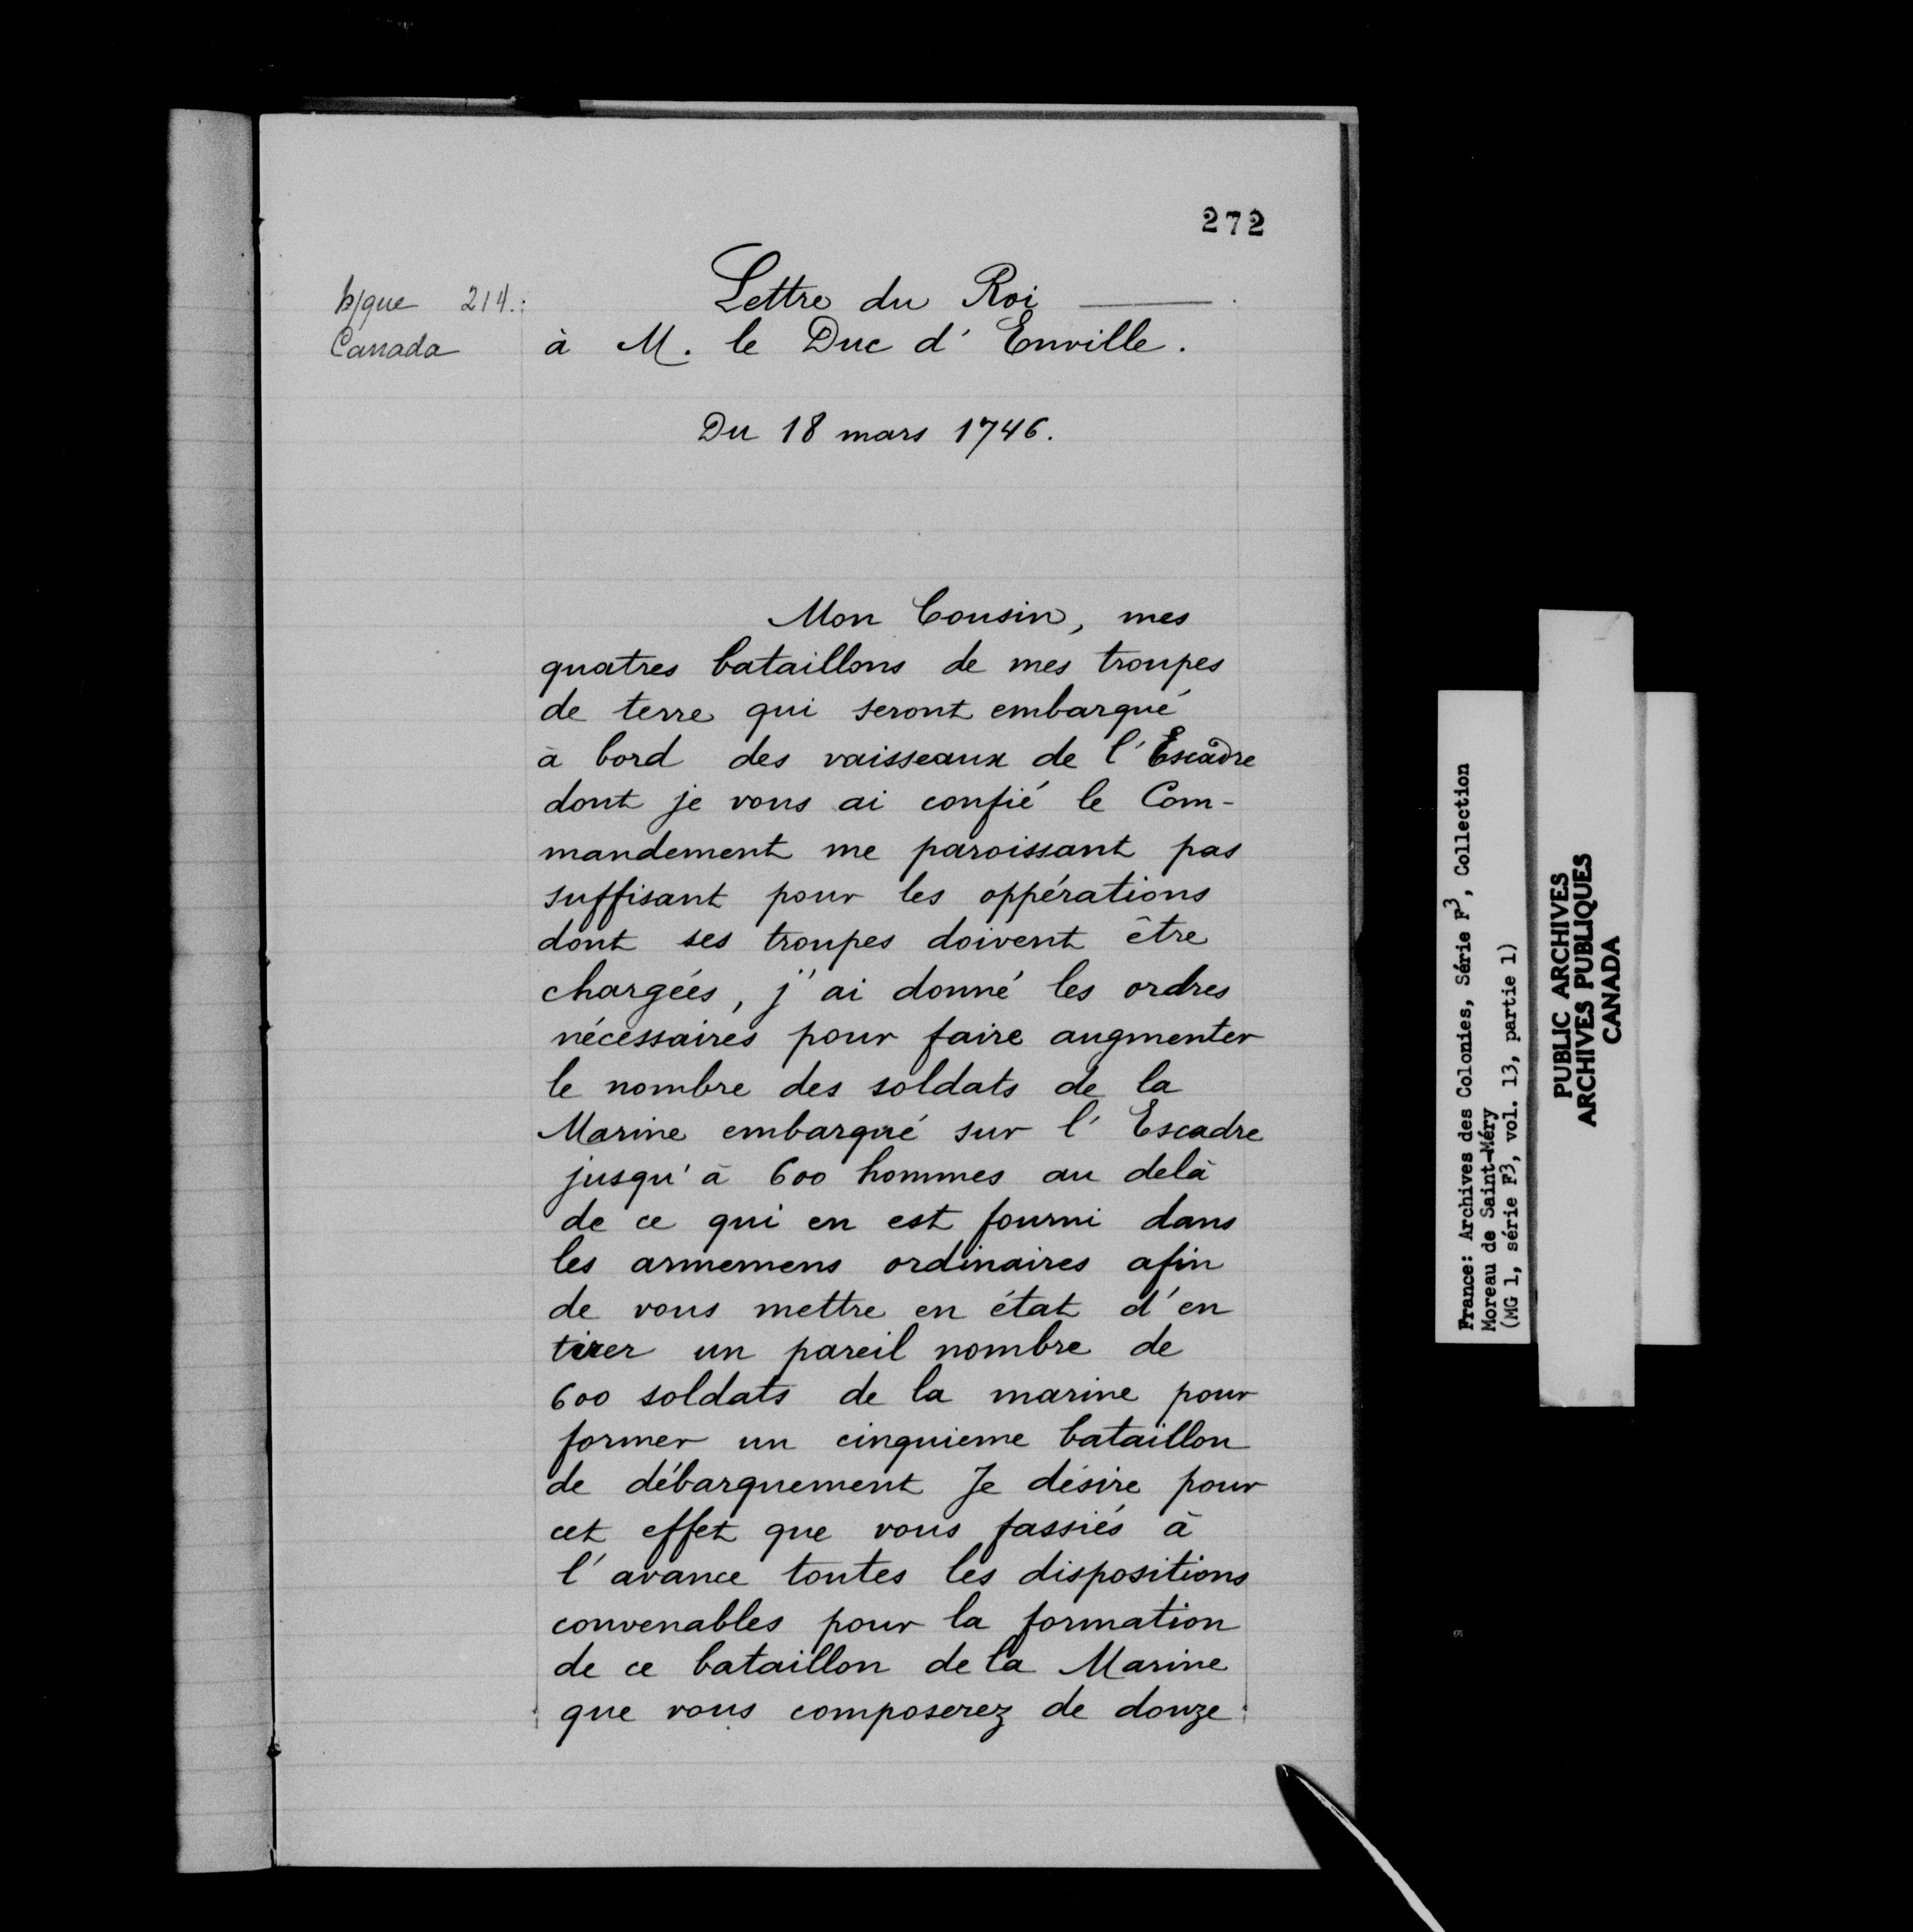 272
Lettre du Roi
214.:
Canada
à M. le Duc d'Enville.
Du 18 mars 1746.
Mon Cousin, mes
quatres bataillons de mes troupes
de terre qui seront embarqué
à bord des vaisseaux de l'Escadre
dont je vous ai confié le Com-
mandement me paroissant pas
suffisant pour les oppérations
dont ses troupes doivent être
chargées, j'ai donné les ordres
nécessaires pour faire augmenter
le nombre des soldats de la
Marine embarqué sur l'Escadre
jusqu'à 600 hommes au delà
de ce qui en est fourni dans
les armemens ordinaires afin
de vous mettre en état d'en
tirer un pareil nombre de
600 soldats de la marine pour
former un cinquieme bataillon
de débarquement Je désire pour
cet effet que vous fassiés à
l'avance toutes les dispositions
convenables pour la formation
de ce bataillon de la Marine
que vous composerez de douze
France: Archives des Colonies, Série F3, Collection
Moreau de Saint-Méry
(MG 1, série F3, vol. 13, partie 1)
PUBLIC ARCHIVES
ARCHIVES PUBLIQUES
CANADA